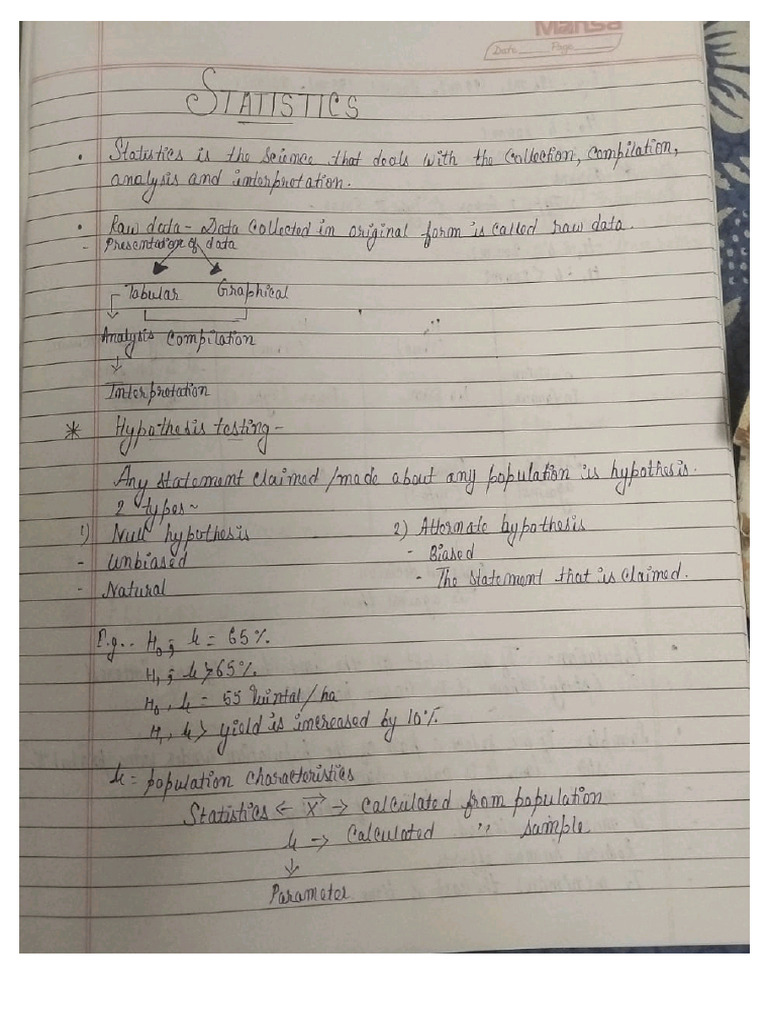 Mansa
Date Page
STATISTICS
• Statistics is the science that deals with the collection, compilation,
analysis and interpretation.
• Raw data - Data collected in original form is called raw data.
- Presentation of data
Tabular Graphical
Analysis Compilation
↓
Interpretation
* Hypothesis testing -
Any statement claimed/made about any population is hypothesis.
2 types ~
1) Null hypothesis 2) Alternate hypothesis
- Unbiased - Biased
- Natural - The statement that is claimed.
E.g.. H₀; μ = 65%.
H₁; μ > 65%.
H₀, μ = 55 Quintal/ha
H₁, μ > yield is increased by 10%
μ = population characteristics
Statistics ← X → calculated from population
μ → Calculated " sample
↓
Parameter